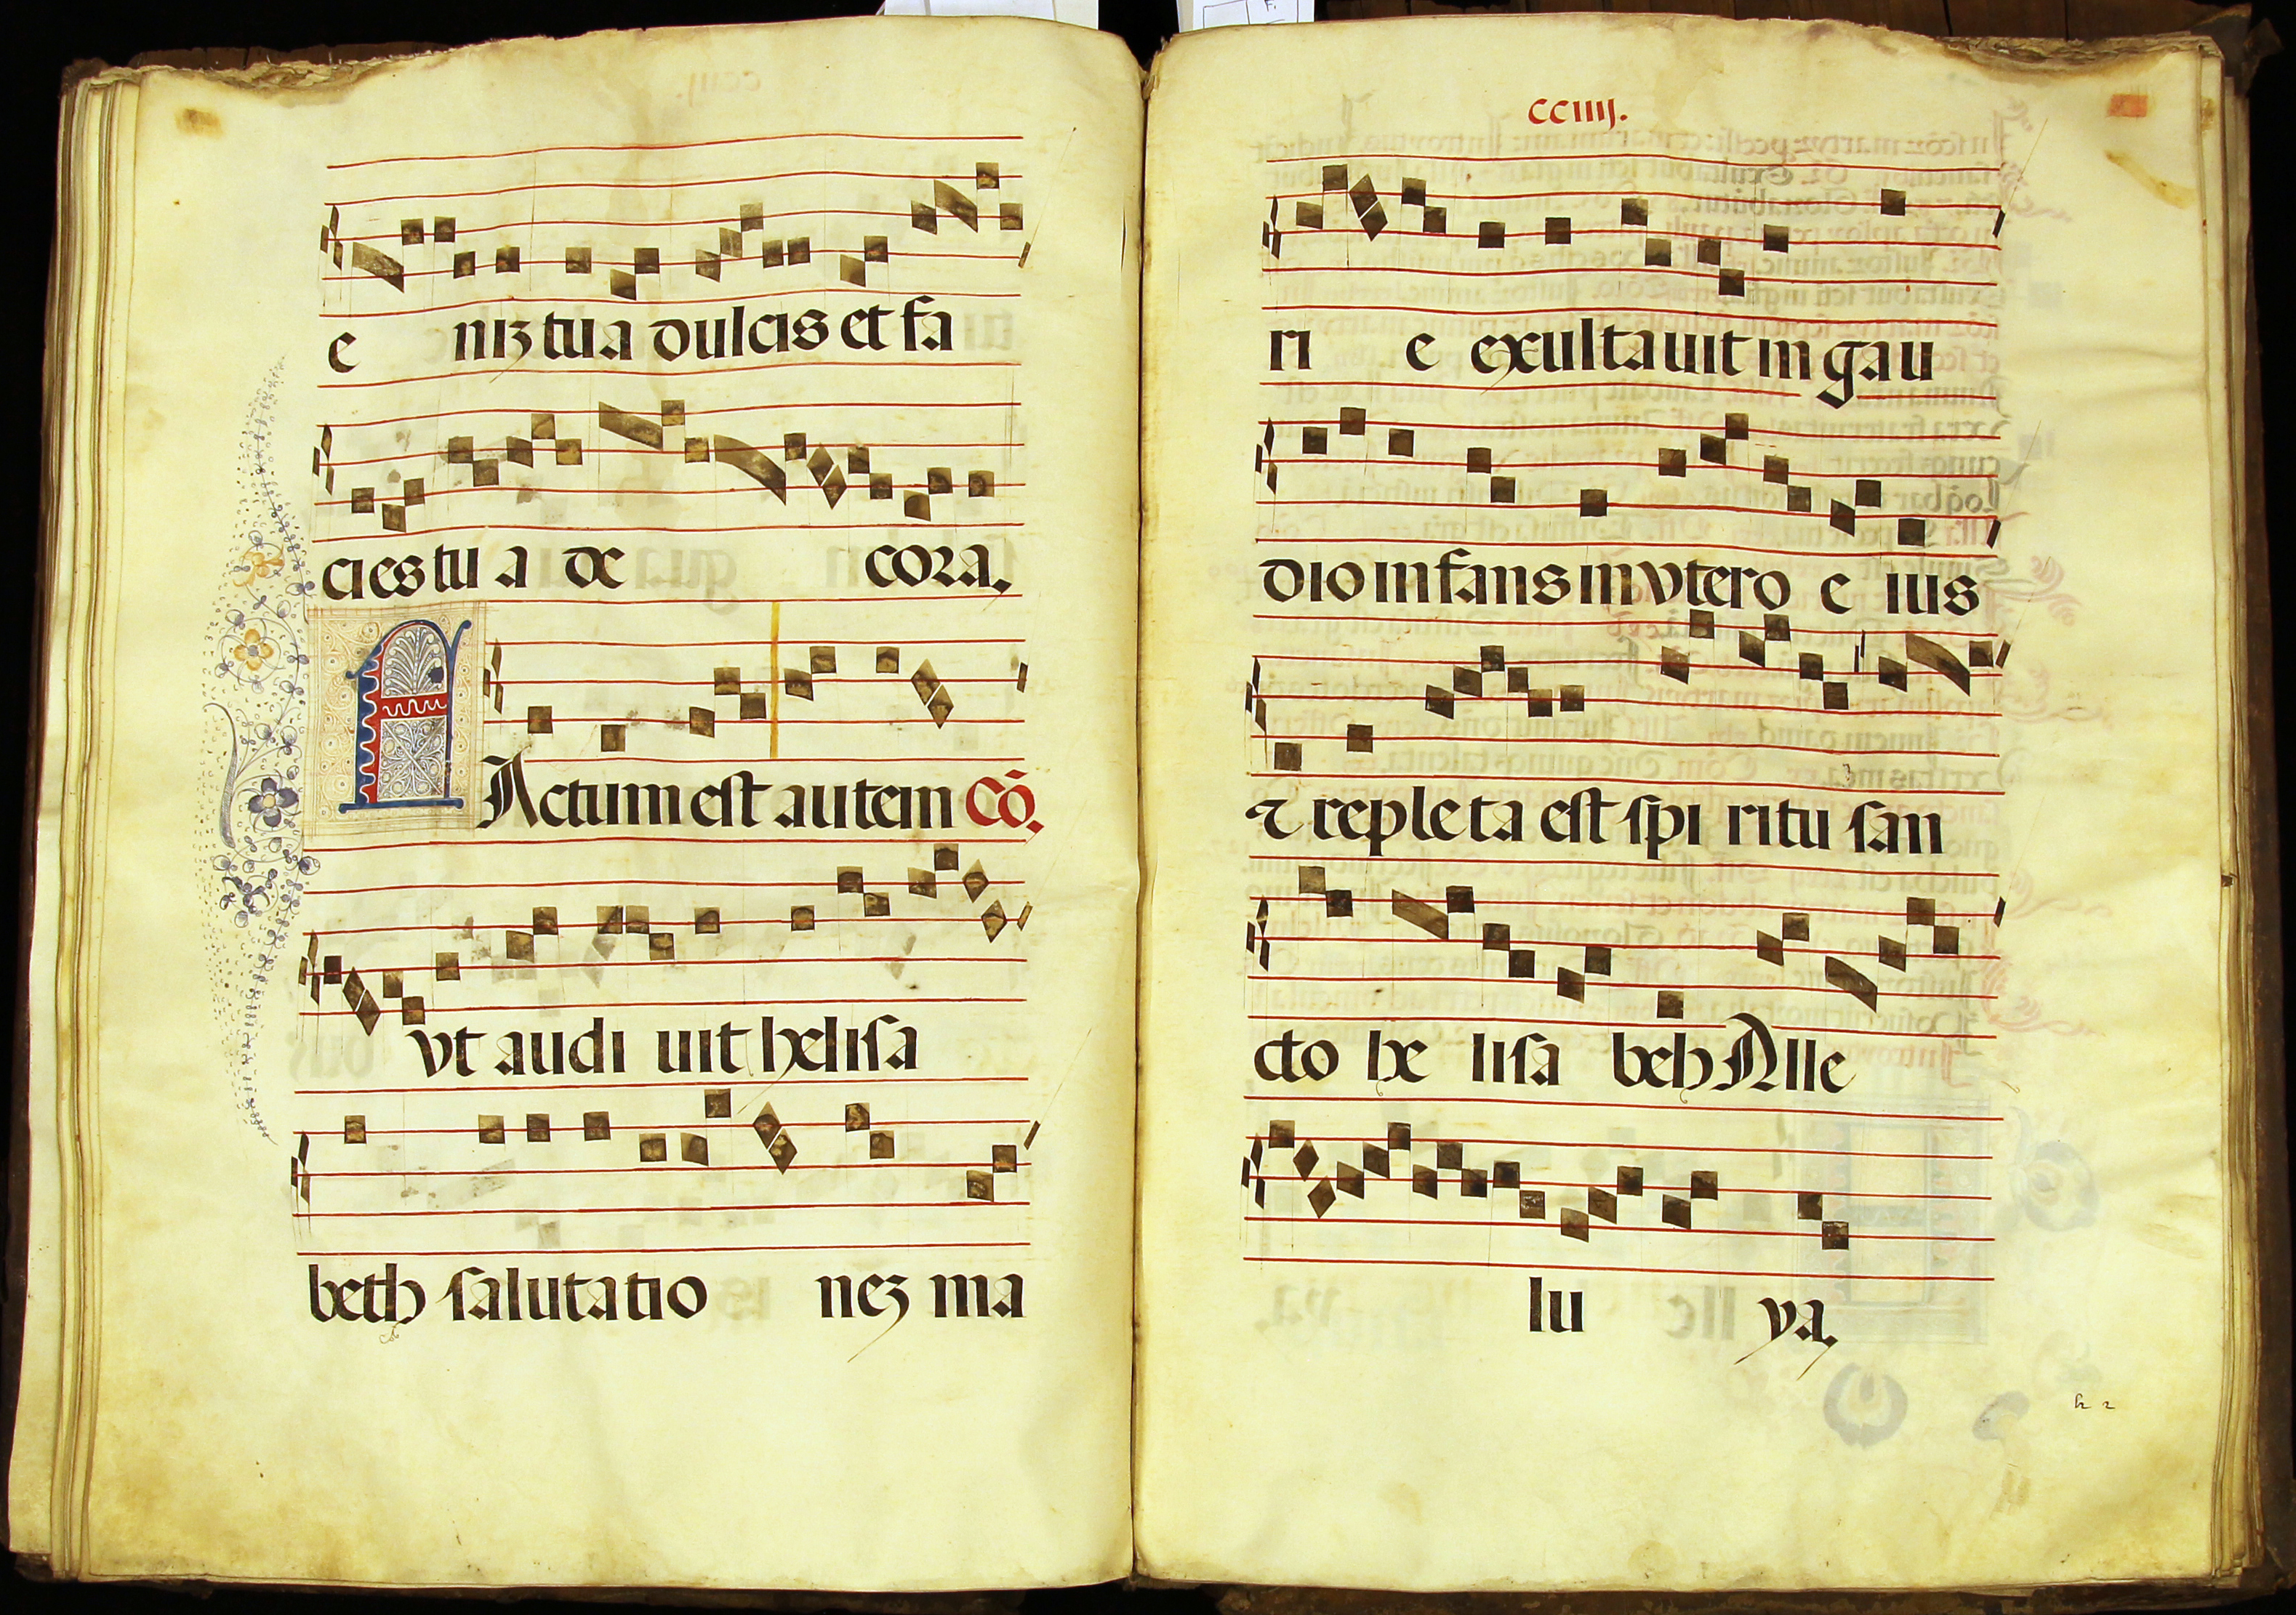 e niʒ tua dulcis et fa
cies tu a de cora.
FActum est autem Cō.
vt audi uit helisa
beth salutatio neʒ ma
cciiij.
ri e exultauit in gau
dio infans in vtero e ius
⁊ repleta est spi ritu san
cto he lisa beh Alle
lu ya.
h 2